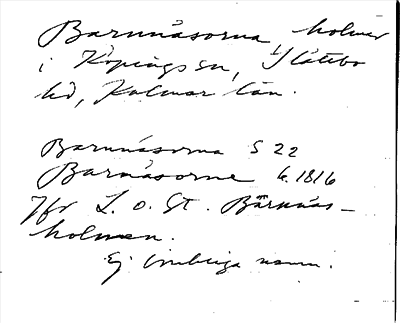 Barnnåsorna, holmar
i Köpings sn, Slätbo
hd, Kalmar län.
Barnnåsorna S 22
Barnåsorne G. 1816
Jfr L. o. St. Bärnås-
holmen.
Ej övriga namn.